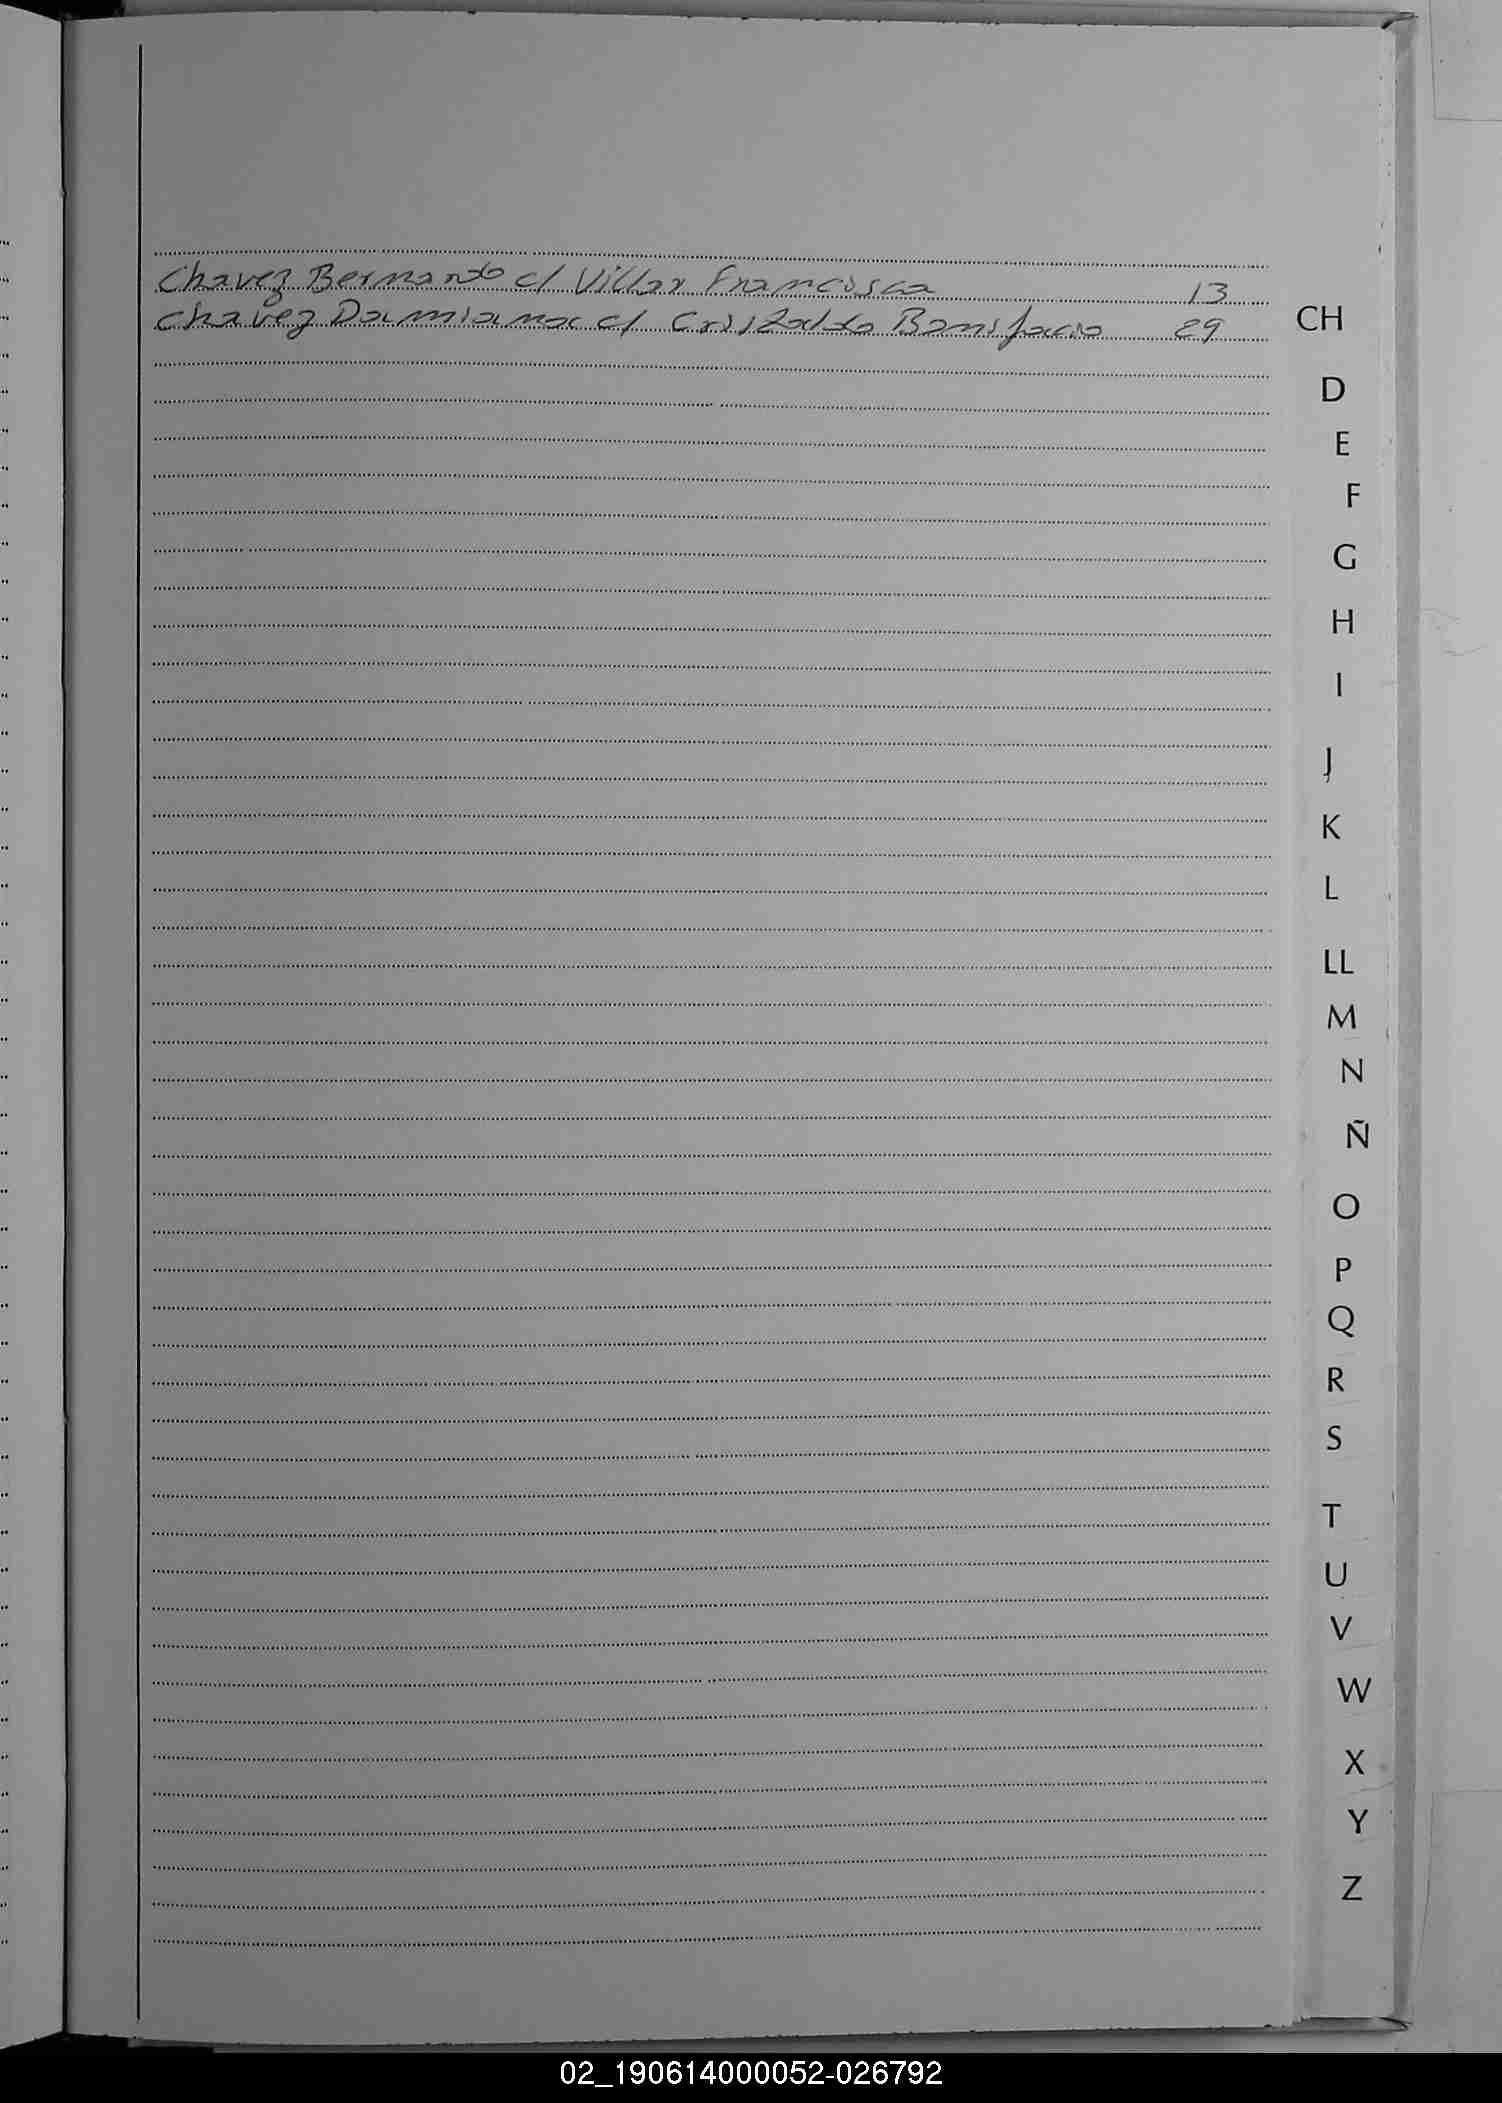 Chavez Bernardo c/ Villar Francisca 13
Chavez Damiana c/ Cristaldo Bonifacio 29
CH
D
E
F
G
H
I
J
K
L
LL
M
N
Ñ
O
P
Q
R
S
T
U
V
W
X
Y
Z
02_190614000052-026792